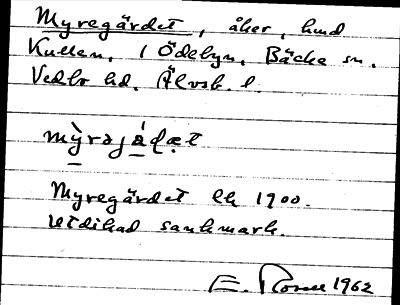 Myregärdet, åker, hmd
Kullen, i Ödebyn, Bäcke sn.
Vedbo hd. Älvsb. l.
mỳrajá̱ḍæt
Myregärdet lk 1900.
Utdikad sankmark.
E. 1962